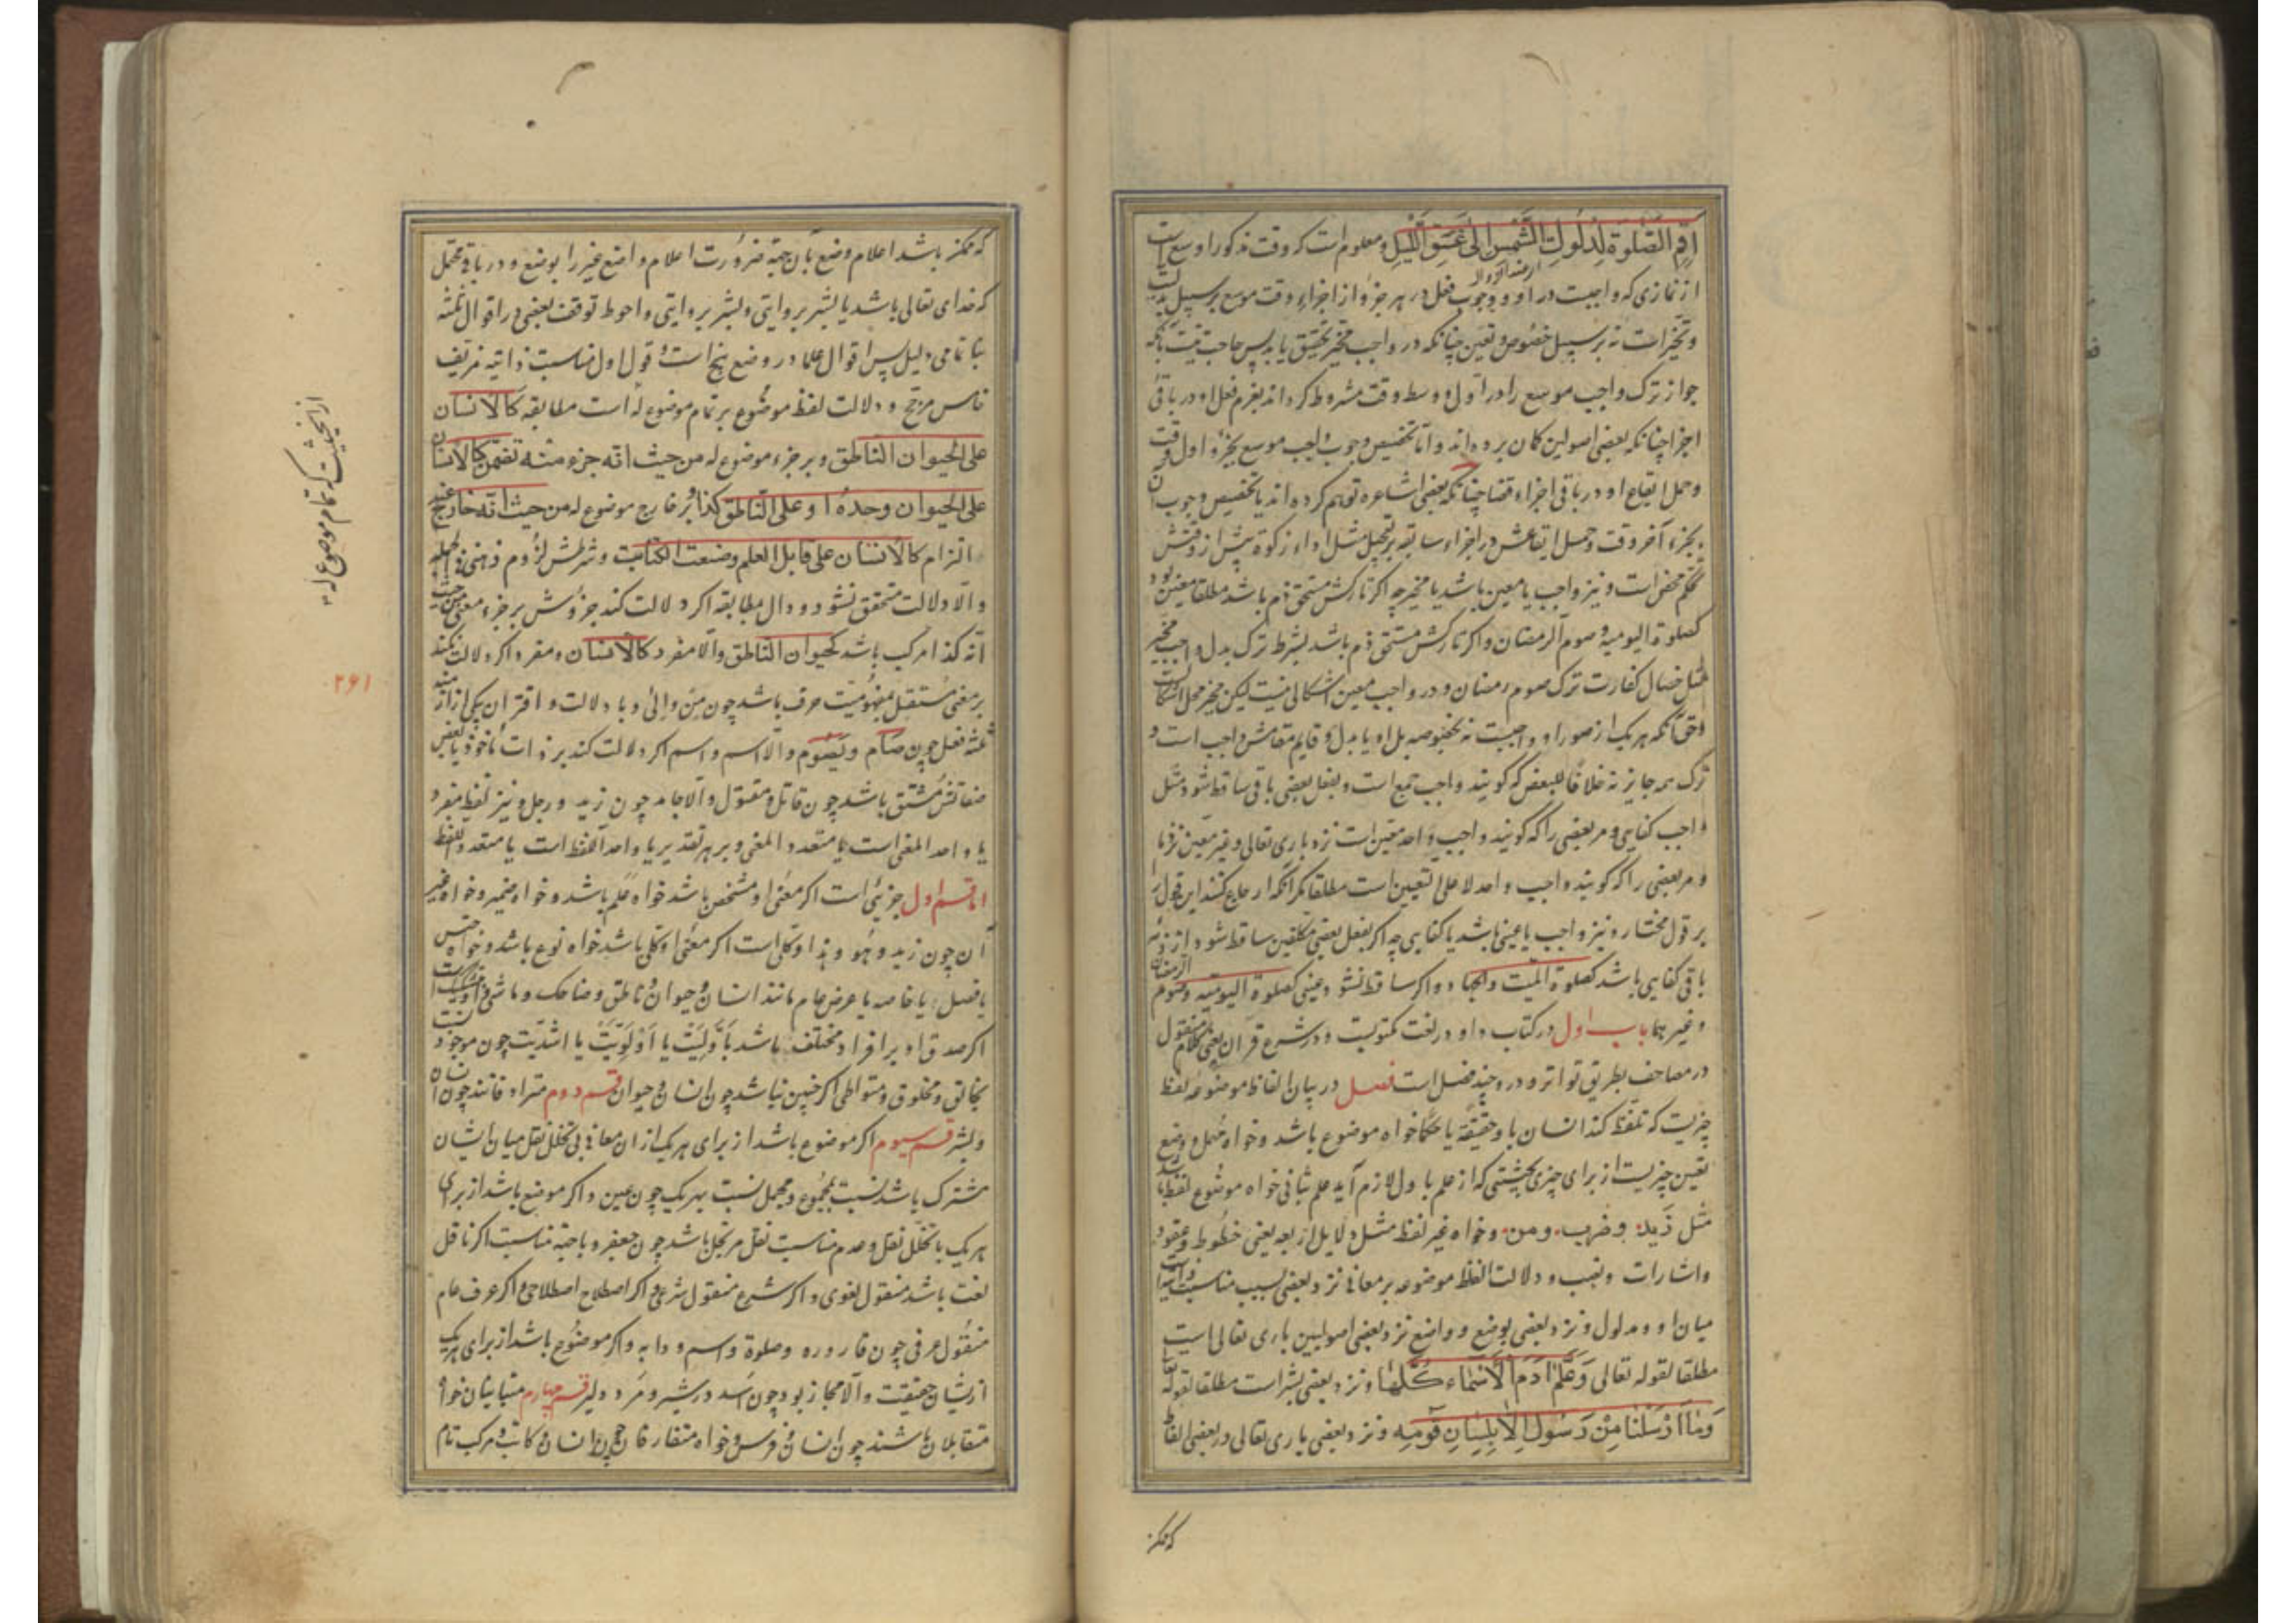 اَقِمِ الصَّلٰوةَ لِدُلُوكِ الشَّمْسِ اِلٰى غَسَقِ اللَّيْلِ و معلوم است که وقت مذکور اوسع است
از نمازی که واجبست در او و وجوب فعل در هر جزؤ از اجزاء وقت موسع بر سبیل بدلیت
و تخیر است نه بر سبیل خصوص و تعین چنانکه در واجب مخیر تحقیق یابد پس حاجت نیست بآنکه
جواز ترک واجب موسع را در اول و وسط وقت مشروط کرداند بعزم فعل او در باقی
اجزا چنانکه بعضی اصولین کمان برده‌اند و اما تخصیص وجوب واجب موسع بجزؤ اول وقت
و حمل ایقاع او در باقی اجزاء قضا چنانکه بعضی اشاعره توهم کرده‌اند یا تخصیص وجوب آن
بجزء آخر وقت و حمل ایقاعش در اجزاء سابقه بر تعجیل مثل اداء زکوة پیش از وقتش
تحکم محض است و نیز واجب یا معین باشد یا مخیر چه اکر تارکش مستحق ذم باشد مطلقا معین بود
کصلوة الیومیه و صوم الرمضان و اکر تارکش مستحق ذم باشد بشرط ترک بدل واجب مخیر
مثل خصال کفارت ترک صوم رمضان و در واجب معین اشکالی نیست لیکن مخیر محل اشکالست
و حق آنکه هر یک از صور او واجبست نه بخصوصه بل او یا بدل و قایم مقامش واجب است و
ترک همه جایز نه خلافا للبعض که کویند واجب جمع است و بفعل بعضی باقی ساقط شود مثل
واجب کفایی و مر بعضی را که کویند واجب واحد معین است نزد باری تعالی و غیر معین نزد ما
و مر بعضی را که کویند واجب واحد لا علی التعیین است مطلقا مکر آنکه ارجاع کنند این قول را
بر قول مختار و نیز واجب یا عینی باشد یا کفایی چه اکر بفعل بعضی مکلفین ساقط شود از ذمه
باقی کفایی باشد کصلوة المیت و الجهاد و اکر ساقط نشود عینی کصلوة الیومیه و صوم الرمضان
و غیرهما باب اول در کتاب و او در لغت مکتوبست و در شرع قرآن یعنی کلام منقول
در مصاحف بطریق تواتر و درو چند فصل است فصل در بیان الفاظ موضوعه لفظ
چیزیست که تلفظ کند انسان باو حقیقة یا حکما خواه موضوع باشد و خواه مهمل و وضع
تعین چیزیست از برای چیزی بحیثیتی که از علم باول لازم آید علم بثانی خواه موضوع لفظ باشد
مثل زید و ضرب و من و خواه غیر لفظ مثل دلایل اربعه یعنی خطوط و عقود
و اشارات و نصب و دلالت الفظ موضوعه بر معانی نزد بعضی بسبب مناسبت ذاتیه است
میان او و مدلول و نزد بعضی بوضع و واضع نزد بعضی اصولیین باری تعالی است
مطلقا لقوله تعالی وَعَلَّمَ اٰدَمَ الْاَسْمَاءَ كُلَّهَا و نزد بعضی بشر است مطلقا لقوله تعا
وَمَا اَرْسَلْنَا مِنْ رَسُولٍ اِلَّا بِلِسَانِ قَوْمِهٖ و نزد بعضی باری تعالی در بعضی الفاظ
که ممکن
که ممکن باشد اعلام وضع بآن جهة ضرورت اعلام واضع غیر را بوضع و در باقی محتمل
که خدای تعالی باشد یا بشر بروایتی و بشر بروایتی و احوط توقف بعضی در اقوال ثلثه
بنا تمامی دلیل پس اقوال علما در وضع پنج است و قول اول مناسبت ذاتیه مزیف
خامس مرجح و دلالت لفظ موضوع بر تمام موضوع له است مطابقه کالانسان
علی الحیوان الناطق و بر جزء موضوع له من حیث انه جزء منه تضمن کالانسان
علی الحیوان وحده او علی الناطق کذا و بر خارج موضوع له من حیث انه خارج عنه
التزام کالانسان علی قابل العلم و صنعت الکتابت و شرطش لزوم ذهنی فی الجمله
و الا دلالت متحقق نشود و دال مطابقه اکر دلالت کند جزؤش بر جزء معنی من حیث
انه کذا مرکب باشد کحیوان الناطق و الا مفرد کالانسان و مفرد اکر دلالت نکند
بر معنی مستقل بمفهومیت حرف باشد چون من و الی و با دلالت و اقتران بیکی از ازمنه
ثلثه فعل چون صام و یصوم و الا اسم و اسم اکر دلالت کند بر ذات مأخوذ با بعض
صفاتش مشتق باشد چون قاتل و مقتول و الا جامد چون زید و رجل و نیز لفظ مفرد
یا واحد المعنی است یا متعدد المعنی و بر هر تقدیر یا واحد اللفظ است یا متعدد اللفظ
اما قسم اول جزیی است اکر معنی او مشخص باشد خواه علم باشد و خواه ضمیر و خواه غیر
آن چون زید و هو و هذا و کلی است اکر معنی او کلی باشد خواه نوع باشد و خواه جنس
یا فصل یا خاصه یا عرض عام مانند انسان و حیوان و ناطق و ضاحک و ماشی و مشکک است
اکر صدق او بر افراد مختلف باشد باولیت یا اولویت یا اشدیت چون موجود نسبت
بخالق و مخلوق و متواطی اکر چنین نباشد چون انسان و حیوان قسم دوم مترادفانند چون انسان
و بشر قسم سیوم اکر موضوع باشد از برای هر یک از ان معانی بی تخلل نقل میان ایشان
مشترک باشد نسبت بمجموع و مجمل نسبت بهر یک چون عین و اکر موضع باشد از برای
هر یک با تخلل نقل و عدم مناسبت نقل مرتجل باشد چون جعفر و با جهة مناسبت اکر ناقل
لغت باشد منقول لغوی و اکر شرع منقول شرعی و اکر اصطلاح اصطلاحی و اکر عرف عام
منقول عرفی چون قاروره و صلوة و اسم و دابه و اکر موضوع باشد از برای یک
از یشان حقیقت و الا مجاز بود چون اسد در شیر و مرد دلیر قسم چهارم متباینان خواه
متقابلان باشند چون انسان و فرس و خواه متقارفان چون انسان و کاتب و مرکب تام
از حیثیت که تمام موضوع له
۲۶۱